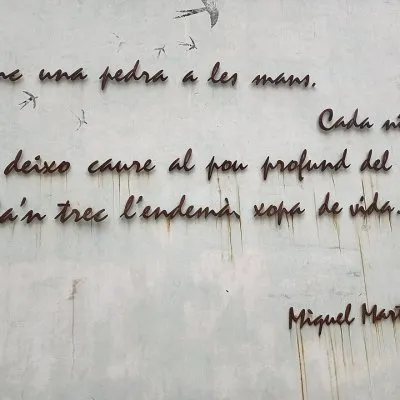 una pedra a les mans.
Cada
deixo caure al pou profund del
trec l'endemà, xopa de vida.
Miquel